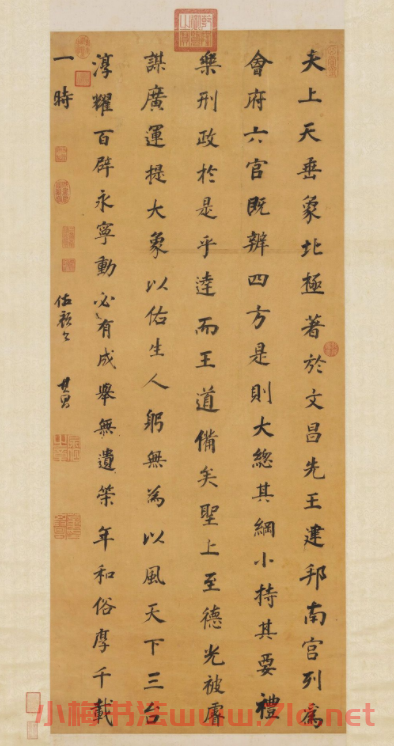 夫上天垂象北極著於文昌先王建邦南宫列為
會府六官既辨四方是則大總其綱小持其要禮
樂刑政於是乎達而王道備矣聖上至德光被睿
謀廣運提大象以佑生人躬無為以風天下三台
淳耀百辟永寧動必有成舉無遺策年和俗厚千載
一時
小梅书法www.7lo.net